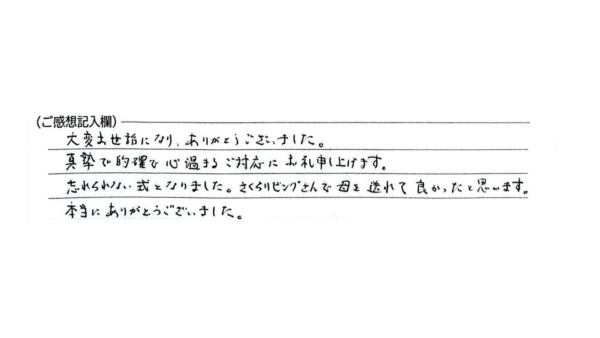 (ご感想記入欄)
大変お世話になり、ありがとうございました。
真摯で的確で心温まるご対応にお礼申し上げます。
忘れられない式となりました。さくらリビングさんで母を送れて良かったと思います。
本当にありがとうございました。